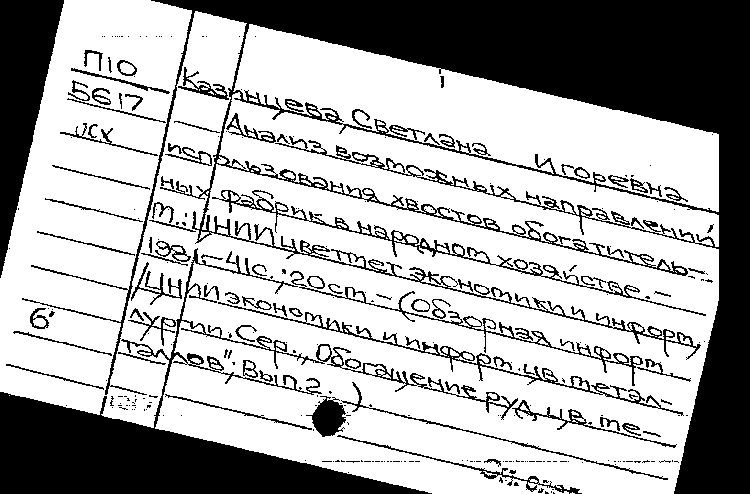 П10
5617
Казинцева, Светлана Игоревна
Анализ возможных направлений
использования хвостов обогатитель-
ных фабрик в народном хозяйстве. –
М.: ЦНИИцветмет экономики и информ,
1981. – 41с.; 20см. – (Обзорная информ.
/ЦНИИ экономики и информ. цв. метал-
лургии. Сер. „Обогащение руд цв. ме-
таллов"; Вып. 2. )
б'